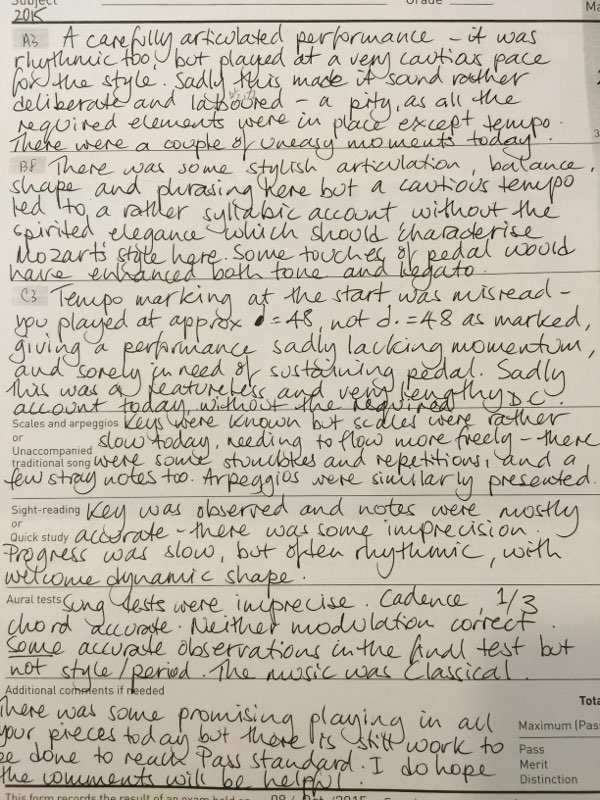 Subject
Grade
Ma
2015
A3 A carefully articulated performance - it was
rhythmic too! but played at a very cautious pace
for the style. Sadly this made it sound rather
deliberate and laboured - a pity, as all the
required elements were in place except tempo.
There were a couple of uneasy moments today.
B8 There was some stylish articulation, balance,
shape and phrasing here but a cautious tempo
led to a rather syllabic account without the
spirited elegance which should characterise
Mozart's style here. Some touches of pedal would
have enhanced both tone and legato.
C3 Tempo marking at the start was misread -
you played at approx ♩=48, not 𝅗𝅥.=48 as marked,
giving a performance sadly lacking momentum,
and sorely in need of sustaining pedal. Sadly
this was a featureless and very lengthy
account today, without the required D.C.
Scales and arpeggios Keys were known but scales were rather
or slow today, needing to flow more freely - there
Unaccompanied
traditional song were some stumbles and repetitions, and a
few stray notes too. Arpeggios were similarly presented.
Sight-reading Key was observed and notes were mostly
or
Quick study accurate - there was some imprecision.
Progress was slow, but often rhythmic, with
welcome dynamic shape.
Aural tests Sung tests were imprecise. Cadence, 1/3
chord accurate. Neither modulation correct.
Some accurate observations in the final test but
not style/period. The music was Classical.
Additional comments if needed
There was some promising playing in all
your pieces today but there is still work to
be done to reach Pass standard. I do hope
the comments will be helpful.
Tota
Maximum (Pass
Pass
Merit
Distinction
This form records the result of an exam held on